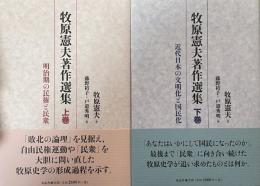 牧原憲夫著作選集 上巻
明治期の民権と民衆
牧原憲夫 著
藤野裕子・戸邉秀明 編
「敗北の論理」を見据え、
自由民権運動や「民衆」を
大胆に問い直した
牧原史学の形成過程を示す。
牧原憲夫著作選集 下巻
近代日本の文明化と国民化
牧原憲夫 著
藤野裕子・戸邉秀明 編
「あなたはいかにして国民になったのか」
最後まで「民衆」に向き合い続けた
牧原史学が追い求めたものは何か。